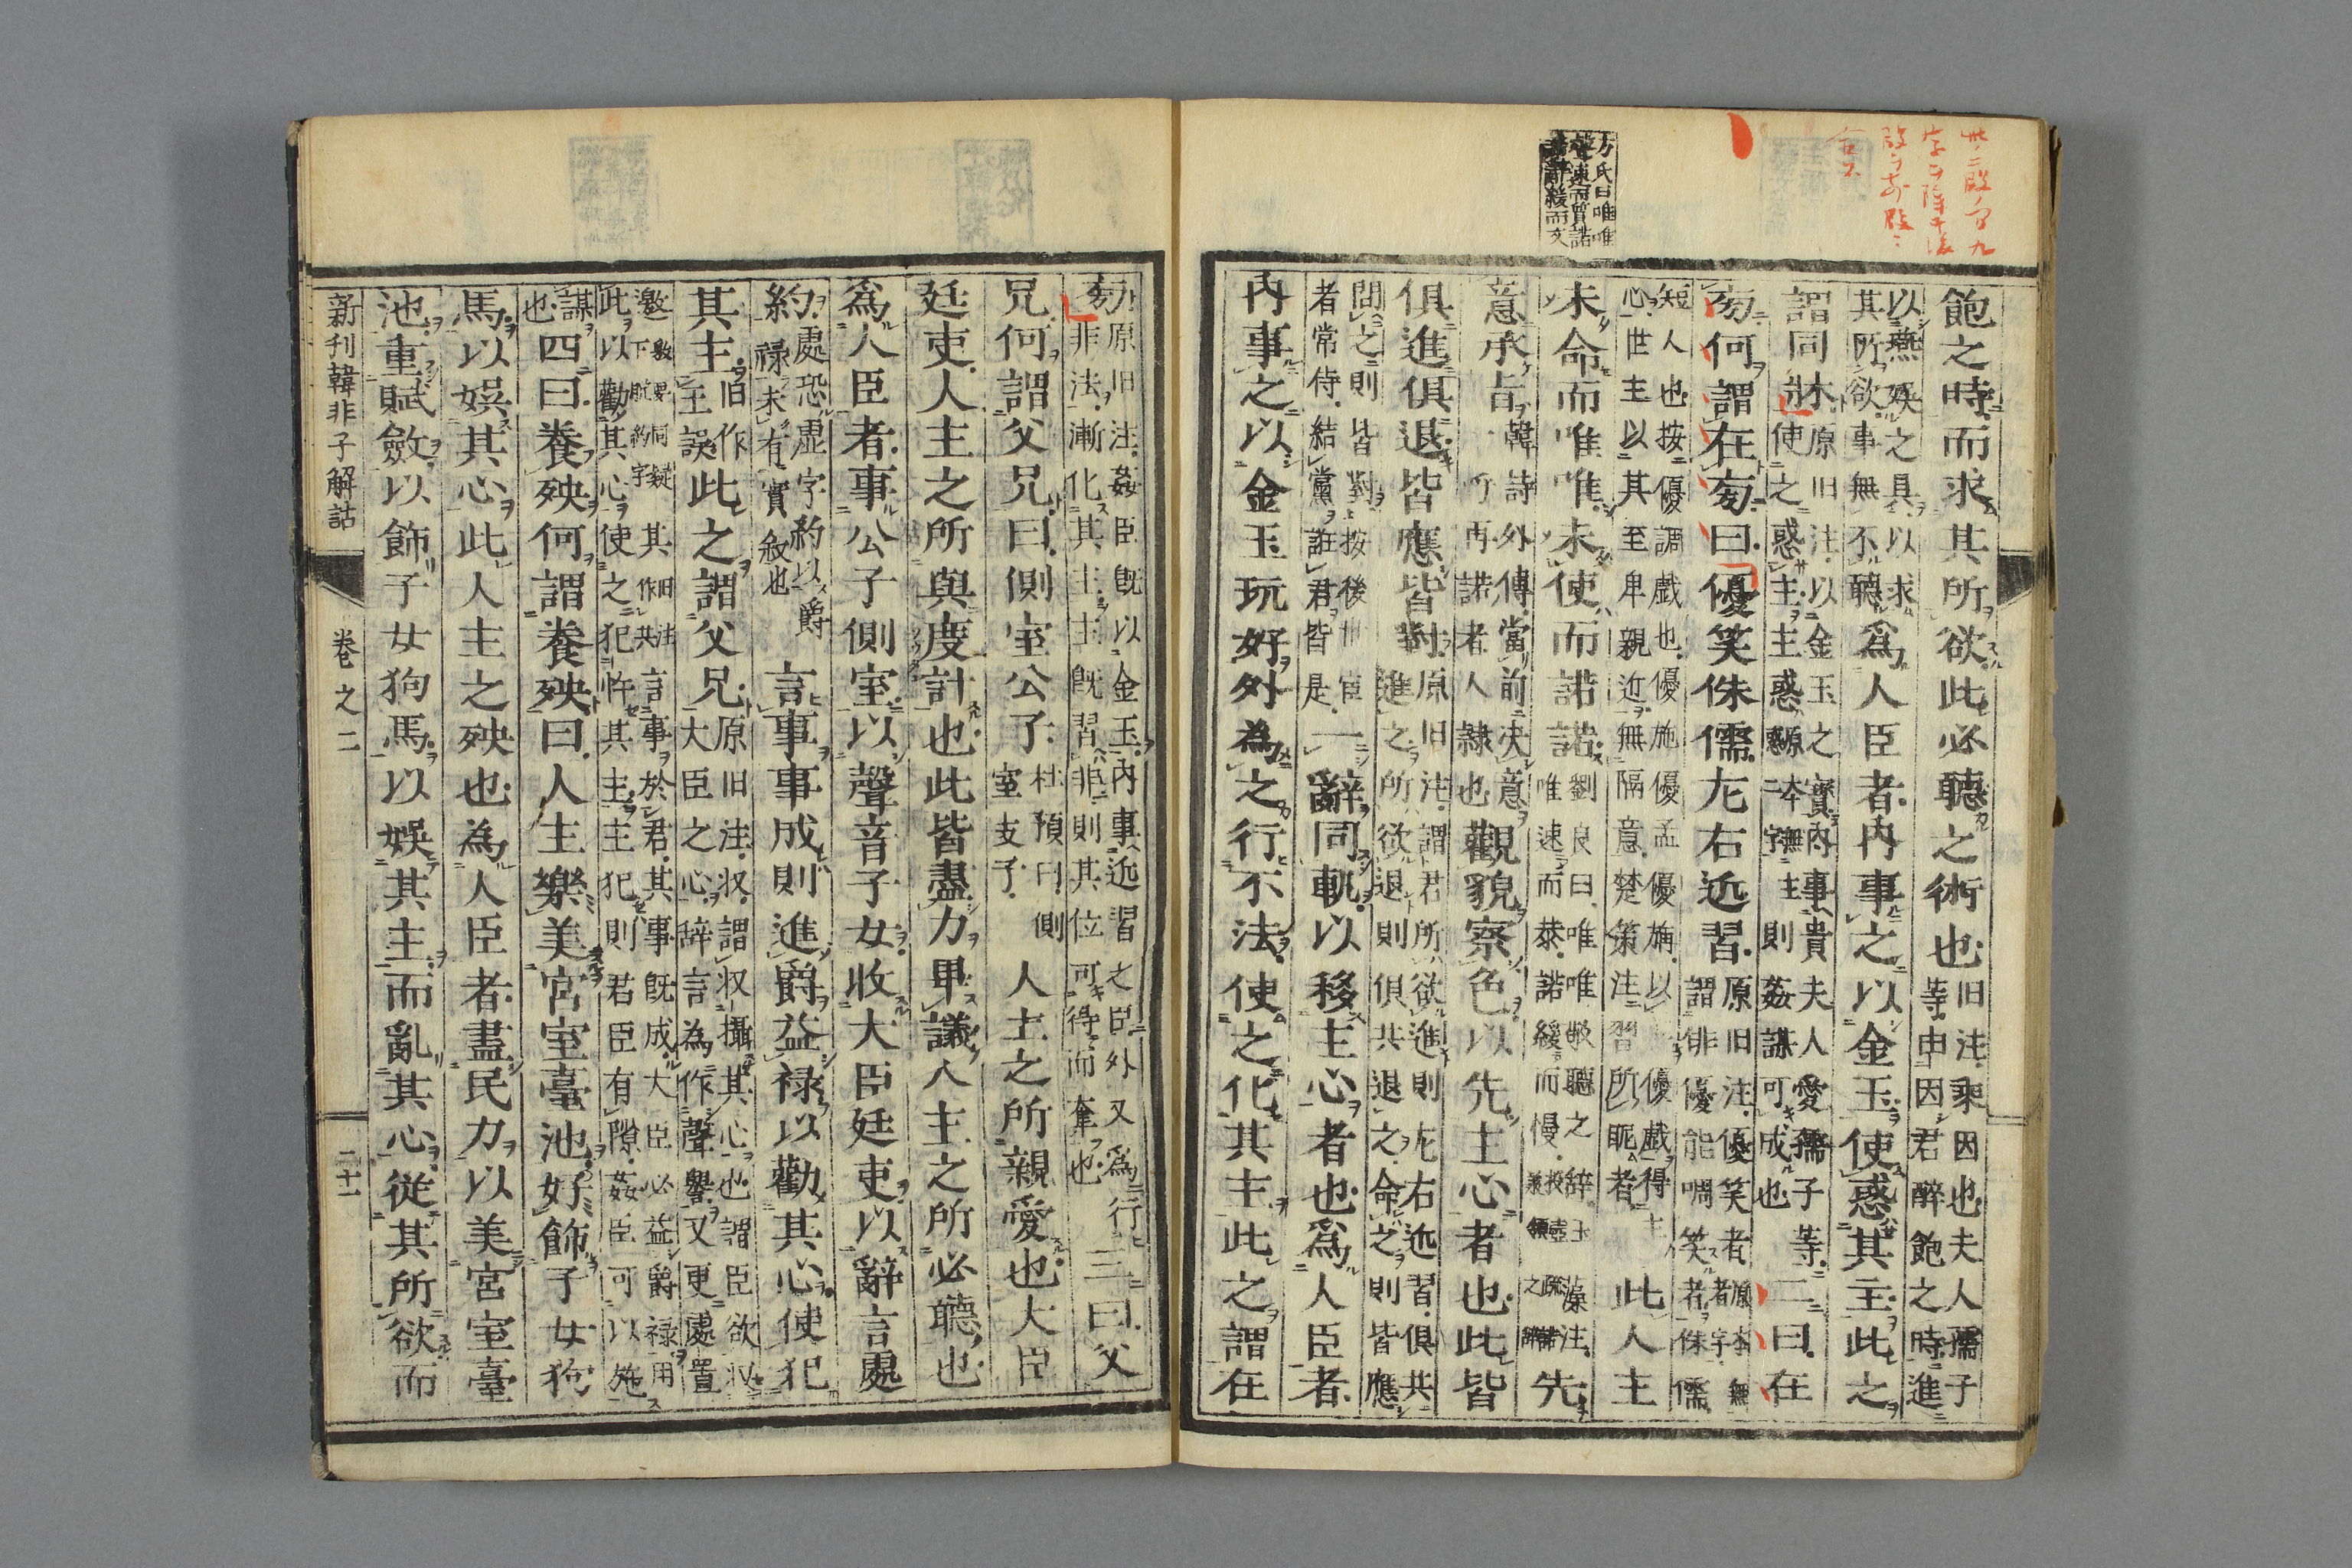 飽之時而求其所欲此必聽之術也 旧注乘因也夫人孺子等由因君醉飽之時進
以燕娛之具以求其所欲事無不聽 爲人臣者內事之以金玉使惑其主此之
謂同牀 原旧注以金玉之寶內事貴夫人愛孺子等使之惑主主惑 則姦謀可成也 二曰在
旁何謂在旁曰優笑侏儒左右近習 原旧注優笑者謂俳優能啁笑者侏儒
短人也按優調戲也優施優孟優旃以優戲得心世主以其至卑親近無隔意楚策注習所昵者 此人主
未命而唯唯未使而諾諾 劉良曰唯唯敬聽之辞唯速而恭諾緩而慢 先
意承旨 韓詩外傳當前決意 再諾者人隸也 觀貌察色以先主心者也此皆
俱進俱退皆應皆對 原旧注謂君所欲進則左右近習俱共進之所欲退則俱共退之命之則皆應
問之則皆對按後 者常侍結黨誑君皆是 一辭同軌以移主心者也爲人臣者
內事之以金玉玩好外為之行不法使之化其主此之謂在
方氏曰唯唯聲速而質諾諾辭緩而文
旁 原旧注姦臣既以金玉內事近習之臣外又爲行非法漸化其主主既習非則其位可得而奪也 三曰父
兄何謂父兄曰側室公子 杜預曰側室支子 人主之所親愛也大臣
廷吏人主之所與度計也此皆盡力畢議人主之所必聽也
爲人臣者事公子側室以聲音子女收大臣廷吏以辭言處
約 處恐虛字約以爵禄未有實敘也 言事事成則進爵益禄以勸其心使犯
其主 旧作主誤 此之謂父兄 原旧注収謂収攝其心也謂臣欲収大臣之心辞言為作聲譽又更處置
言事於君其事既成大臣必益爵禄用此以勸其心使之犯忤其主主犯則君臣有隙姦臣可以施
謀也 四曰養殃何謂養殃曰人主樂美宮室臺池好飾子女狗
馬以娛其心此人主之殃也為人臣者盡民力以美宮室臺
池重賦斂以飾子女狗馬以娛其主而亂其心從其所欲而
新刊韓非子解詁
卷之二
二十一